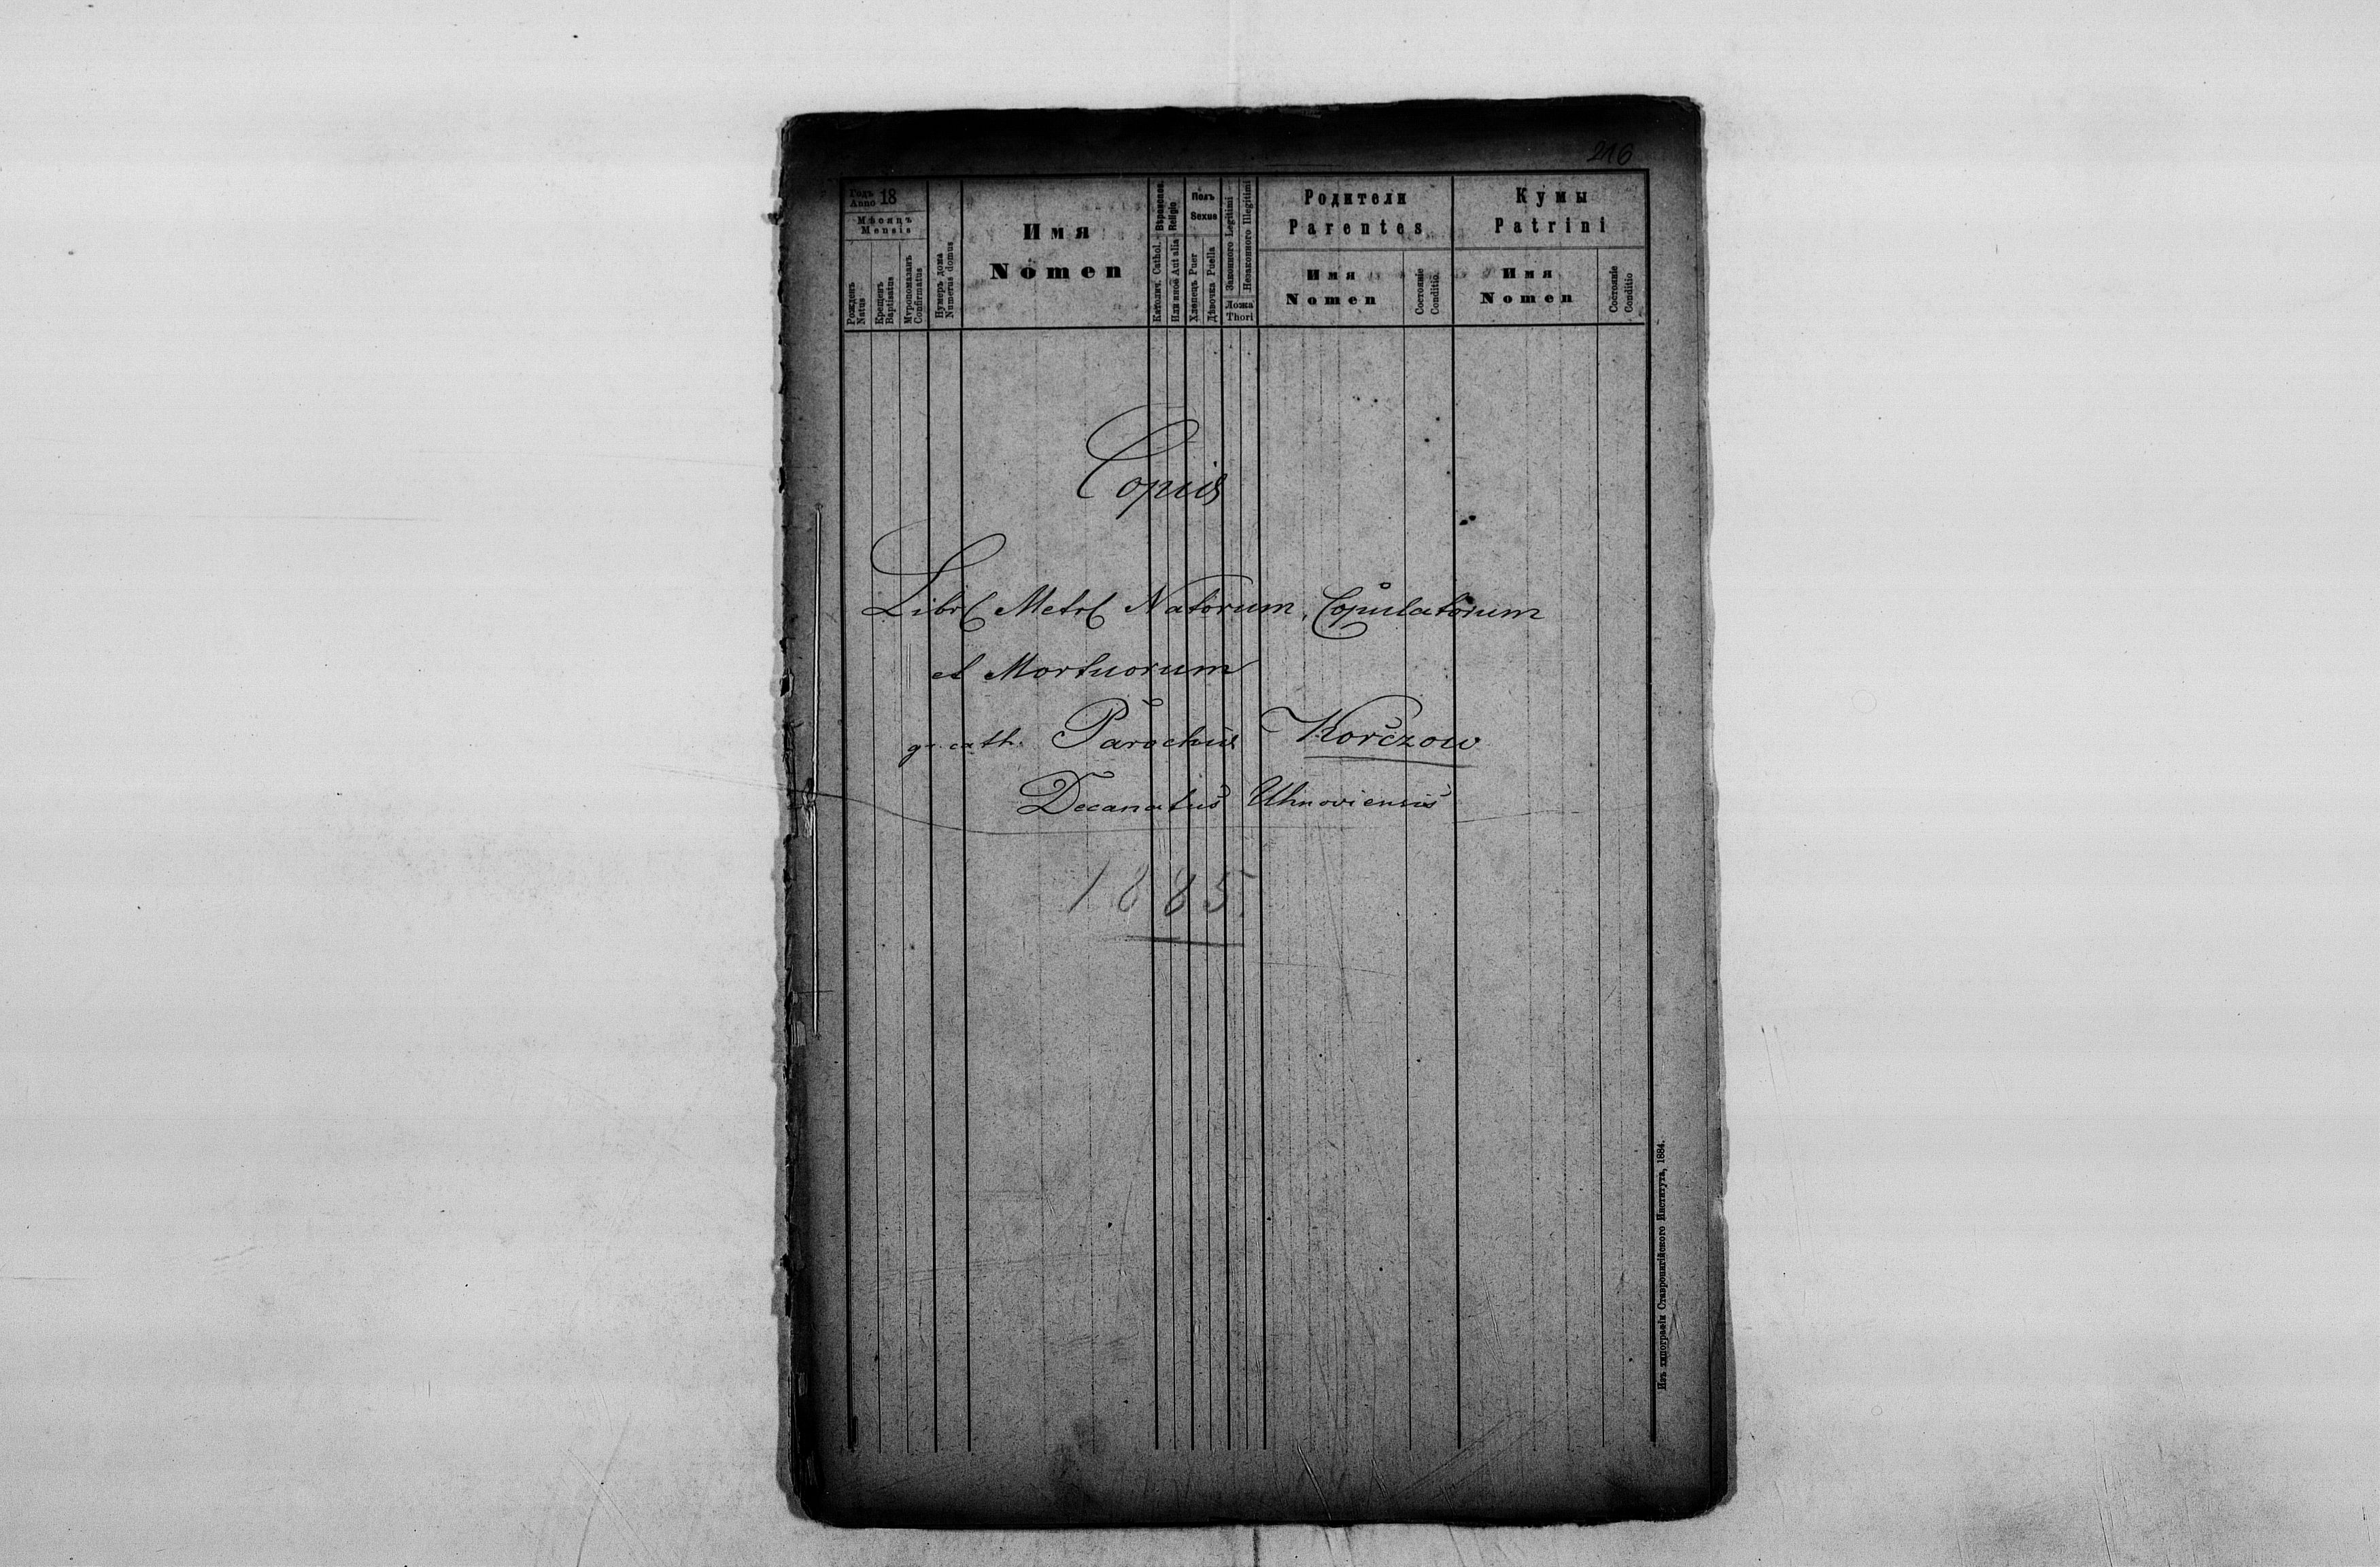 216
Годъ Anno 18
Мѣсяцъ
Mensis
Рожденъ
Natus
Крещенъ
Baptisatus
Мѵропомазанъ
Confirmatus
Нумеръ дома
Numerus domus
Имя
Nomen
Religio
Католич. Cathol.
Или иное Aut alia
Полъ
Sexus
Хлопецъ Puer
Дѣвочка Puella
Законного Legitimi
Незаконного Illegitimi
Ложа
Thori
Родители
Parentes
Имя
Nomen
Состояніе
Conditio.
Кумы
Patrini
Имя
Nomen
Состояніе
Conditio
Copia
Libr Metr Natorum, Copulatorum
et Mortuorum
gr. cath. Parochiae Korczow
Decanatus Uhnoviensis
1885.
Изъ типографіи Ставропигійского Института, 1884.